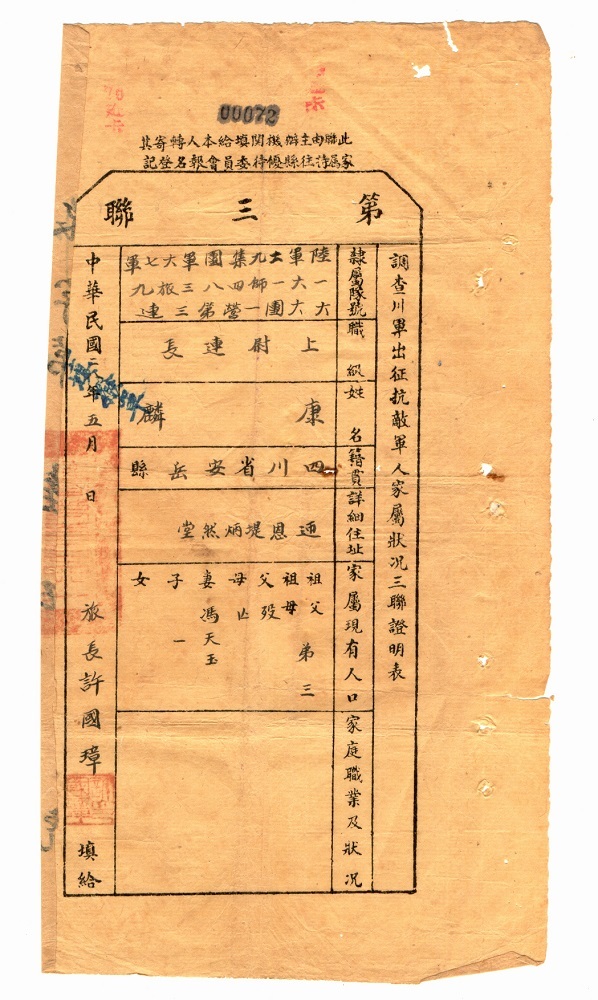 00072
此聯由主辦機關填給本人轉寄其
家屬持往縣優待委員會報名登記
第三聯
調查川軍出征抗敵軍人家屬狀況三聯證明表
隸屬隊號
陸軍二十九集團軍六七軍
一六一師四八三旅九
六六團一營第三連
職級
上尉連長
姓名
康麟
籍貫
四川省安岳縣
詳細住址
通恩堤炳然堂
家屬現有人口
祖父 弟三
祖母
父歿
母亡
妻馮天玉
子一
女
家庭職業及狀況
中華民國 年五月 日 旅長許國璋 填給